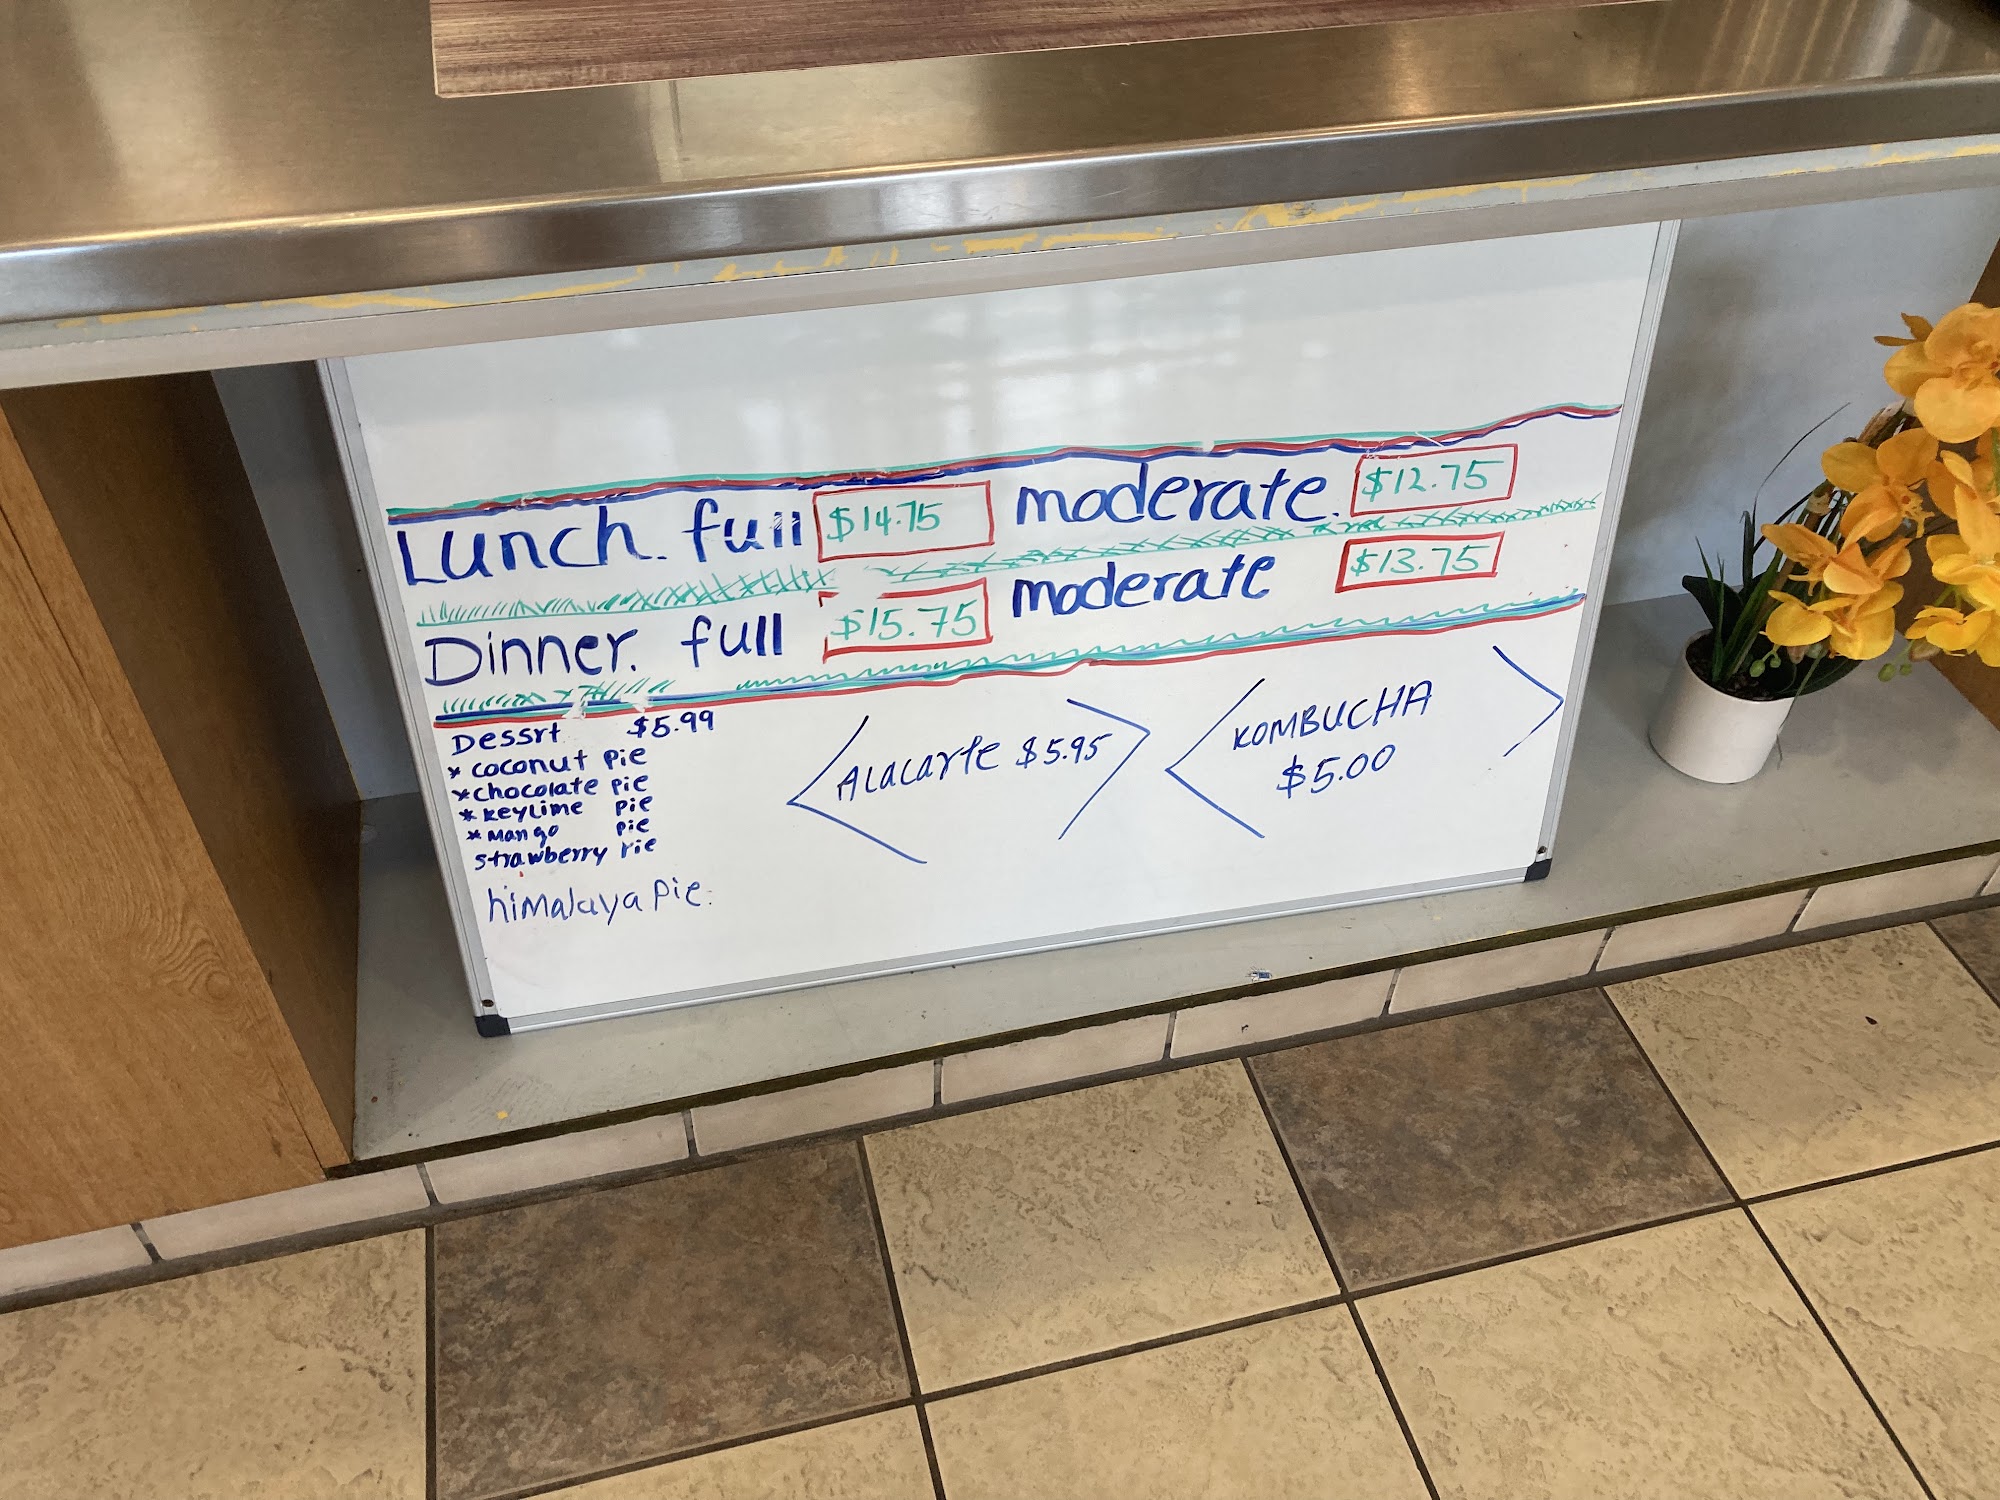 Lunch. full $14.75 moderate. $12.75
Dinner. full $15.75 moderate $13.75
Dessrt $5.99
* coconut pie
* chocolate pie
* keylime pie
* Mango pie
strawberry pie
himalaya pie.
Alacarte $5.95
KOMBUCHA
$5.00